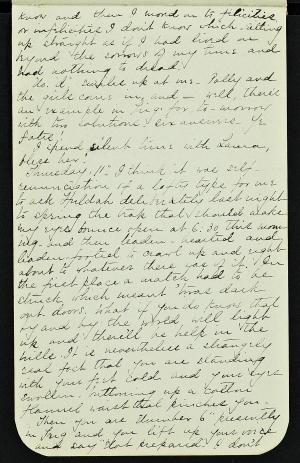 know and then I word on to felicities
or infelicities I don't know which. sitting
up straight as if I had lived on
beyond the sorrows of my time and
had nothing to dread.
So. D. smiles up at me. Polly and
the girls come in, and — will, there's
an example in Trig. for to-morrow
with two solutions
I spend silent time with Laura,
bless her!
Thursday, 11. I think it was self
renunciation of a lofty type for me
to ask Huldah deliberately last night
to spring the trap that should make
my eyes bounce open at 6.30 this morn-
ing. and then leaden-hearted and
leaden footed to crawl up and right
about to whatever there was of it. In
the first place a match had to be
struck, which meant 'twas dark
out doors. What if you do know that
by and by the world will light
up and there'll be help in the
hills it is nevertheless a strangely
real fact that you are standing
with your feet cold and your eyes
swollen, buttoning up a cotton
flannel waist that pinches you.
Then you are number 6 presently
in Trig and you lift up your voice
and say "Not prepared. I don't